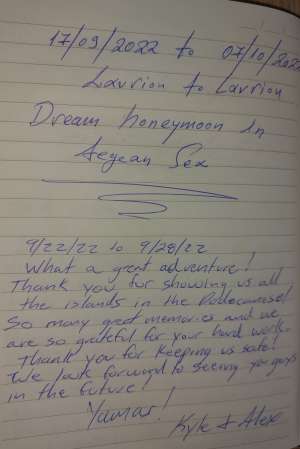 17/09/2022 to 07/10/2022
Lavrion to Lavrion
Dream honeymoon in
Aegean Sex
9/22/22 to 9/28/22
What a great adventure!
Thank you for showing us all
the islands in the Dodecanese!
So many great memories and we
are so grateful for your hard work.
Thank you for keeping us safe!
We look forward to seeing you guys
in the future!
Yamas!
Kyle + Alex